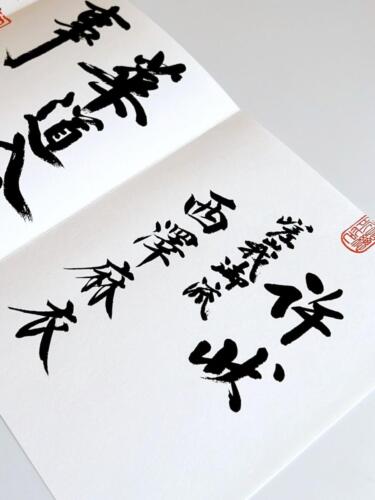 許状
嵯峨御流
西澤麻衣
華道
事